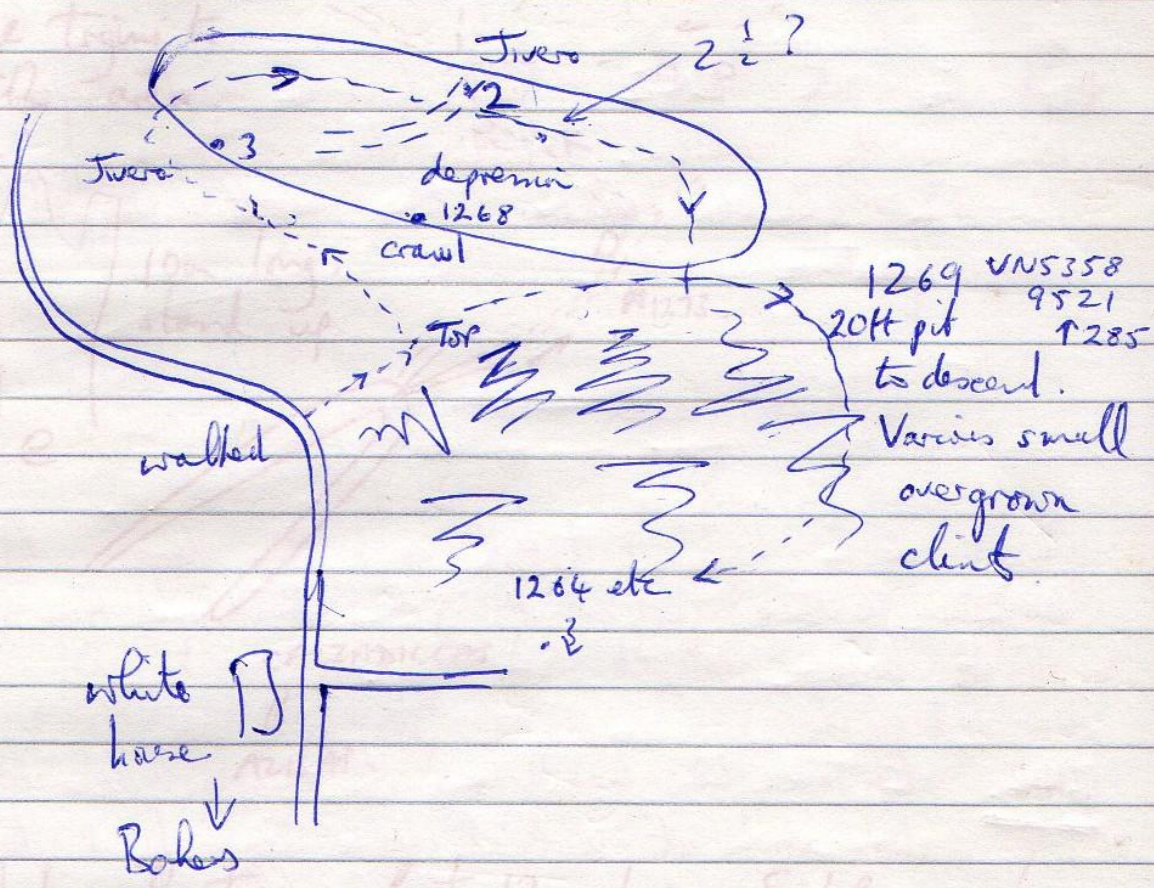 Jivero
2 1/2 ?
1 2
Jivero
3
depression
1268
crawl
1269 VN5358
9521
20ft pit ↑285
to descend.
Top
Various small
overgrown
clints
walked
1264 etc
white
house